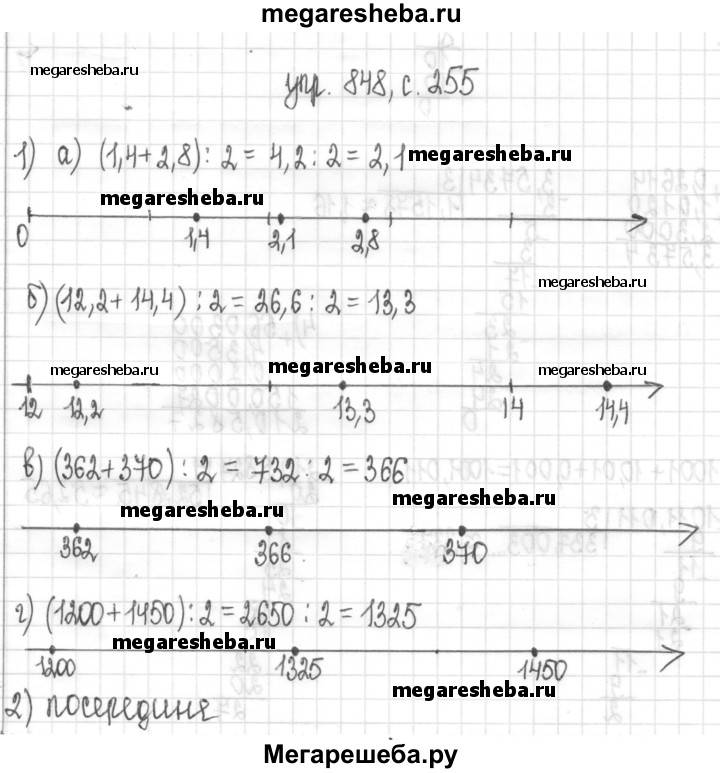 megaresheba.ru
megaresheba.ru
упр. 848, с. 255
1) а) (1,4+2,8) : 2 = 4,2 : 2 = 2,1 megaresheba.ru
megaresheba.ru
0 1,4 2,1 2,8
megaresheba.ru
б) (12,2+14,4) : 2 = 26,6 : 2 = 13,3
megaresheba.ru megaresheba.ru megaresheba.ru
12 12,2 13,3 14 14,4
в) (362+370) : 2 = 732 : 2 = 366
megaresheba.ru
megaresheba.ru
362 366 370
г) (1200+1450) : 2 = 2650 : 2 = 1325
megaresheba.ru
1200 1325 1450
megaresheba.ru
2) посередине
Мегарешеба.ру